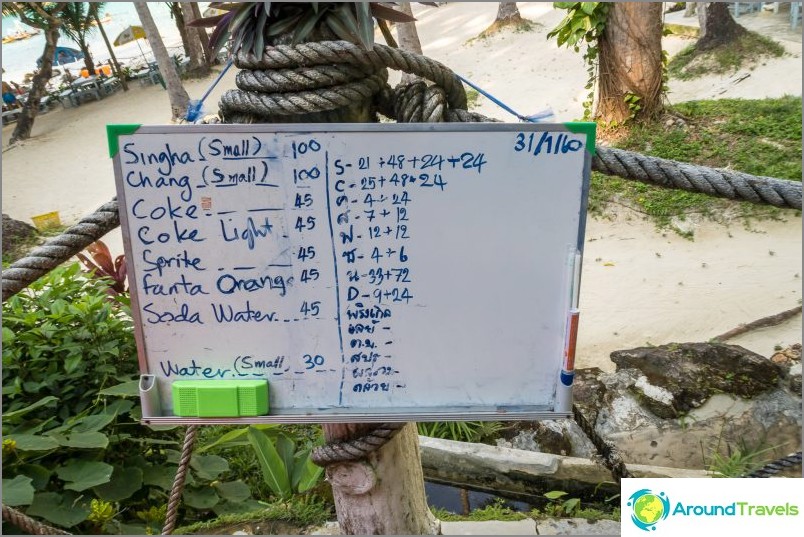 Singha (Small) 100
Chang (Small) 100
Coke 45
Coke Light 45
Sprite 45
Fanta Orang 45
Soda Water 45
Water (Small 30
31/1/60
S - 21 + 48 + 24 + 24
C - 25 + 48 + 24
ค - 4 + 24
ส - 7 + 12
ฟ - 12 + 12
ซ - 4 + 6
น - 33 + 72
D - 9 + 24
AroundTravels